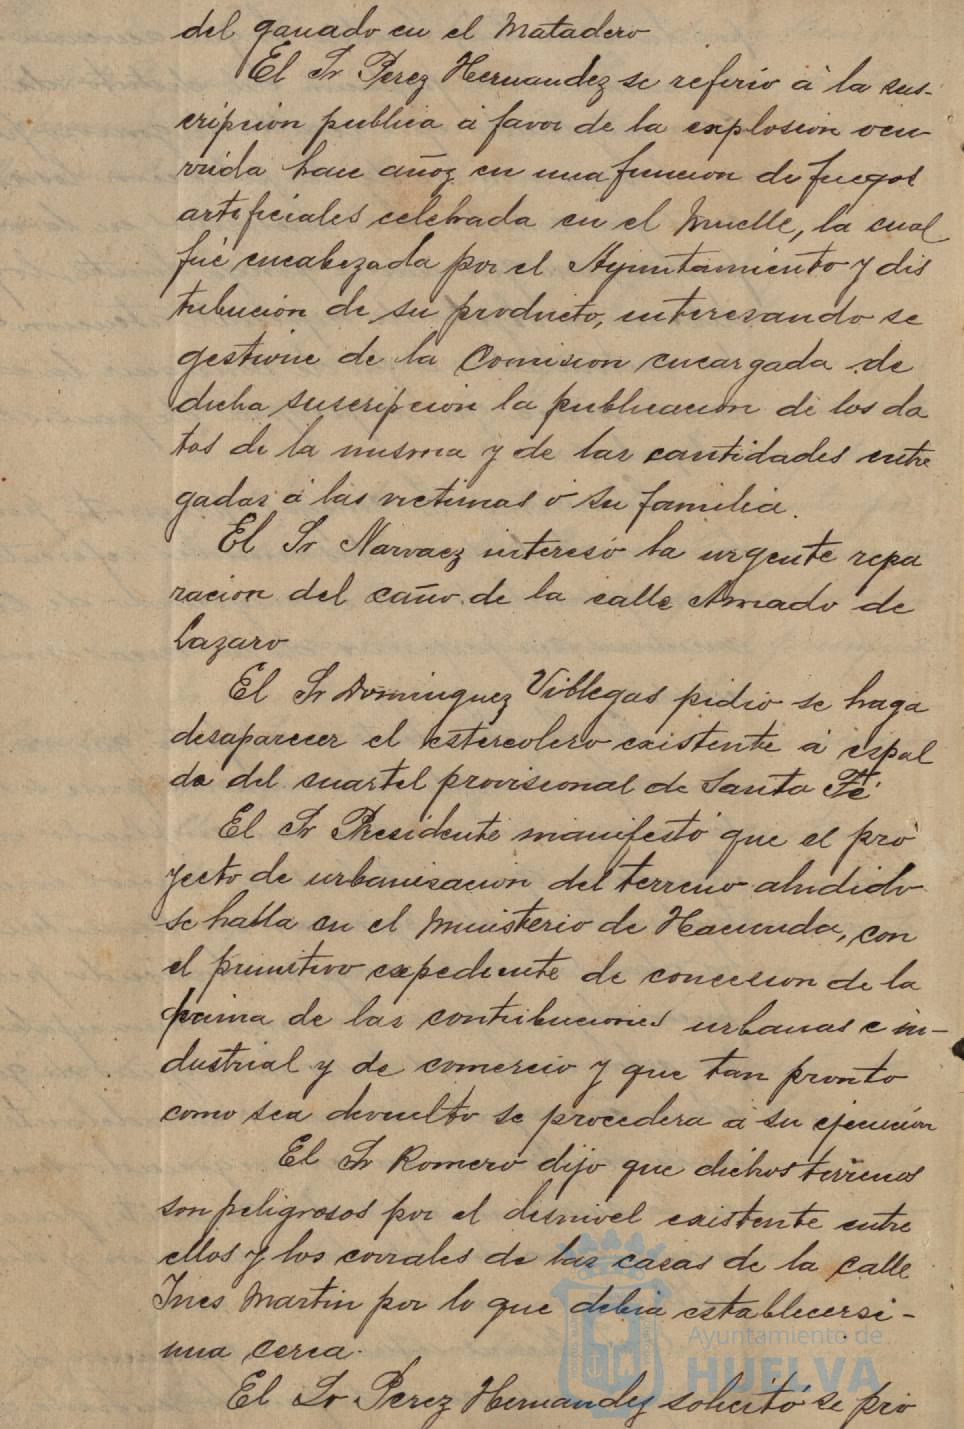 del ganado en el Matadero
El Sr Perez Hernandez se refirio á la sus-
cripcion publica á favor de la explosion ocu
rrida hace años en una funcion de fuegos
artificiales celebrada en el Muelle, la cual
fué encabezada por el Ayuntamiento y dis
tribución de su producto, interesando se
gestione de la Comision encargada de
dicha suscripcion la publicacion de los da
tos de la misma y de las cantidades entre
gadas á las victimas ó su familia.
El Sr Narvaez interesó la urgente repa
racion del caño de la calle Amado de
Lazaro
El Sr Dominguez Villegas pidio se haga
desaparecer el estercolero existente á espal
da del cuartel provisional de Santa Fé
El Sr Presidente manifestó que el pro
yecto de urbanisacion del terreno aludido
se halla en el Ministerio de Hacienda, con
el primitivo expediente de concesion de la
prima de las contribuciones urbanas e in-
dustrial y de comercio y que tan pronto
como sea devuelto se procedera á su ejecución
El Sr Romero dijo que dichos terrenos
son peligrosos por el desnivel existente entre
ellos y los corrales de las casas de la calle
Ines Martin por lo que debia establecerse-
una cerca.
El Sr Perez Hernandez solicitó se pro
Ayuntamiento de
HUELVA